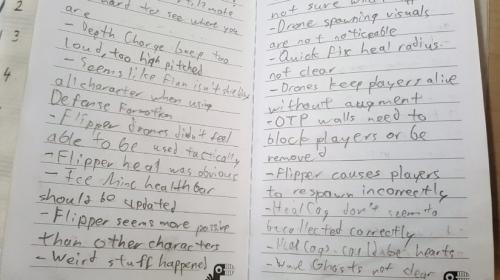 2
3
4
hard to see where you
are
- Depth Charge beep too
loud, too high pitched
- Seems like Elan isn't shielding
all character when using
Defense Formation
- Flipper drones didn't feel
able to be used tactically
- Flipper heal was obvious
- Ice Mine health bar
should be updated
- Flipper seems more passive
than other characters
- Weird stuff happened
not sure
- Drone spawning visuals
are not noticeable
- Quick fix heal radius
not clear
- Drones keep players alive
without augment
- OTP walls need to
block players or be
remove
- Flipper causes players
to respawn incorrectly
- HealCogs don't seem to
be collected correctly
- HealCogs could be hearts
- Ghosts not clear